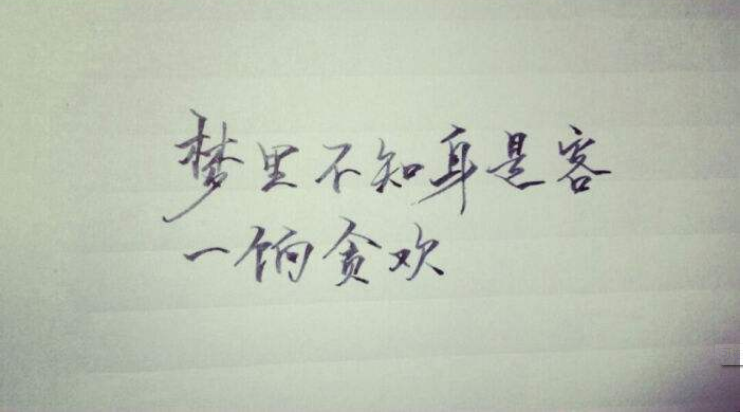 梦里不知身是客
一饷贪欢